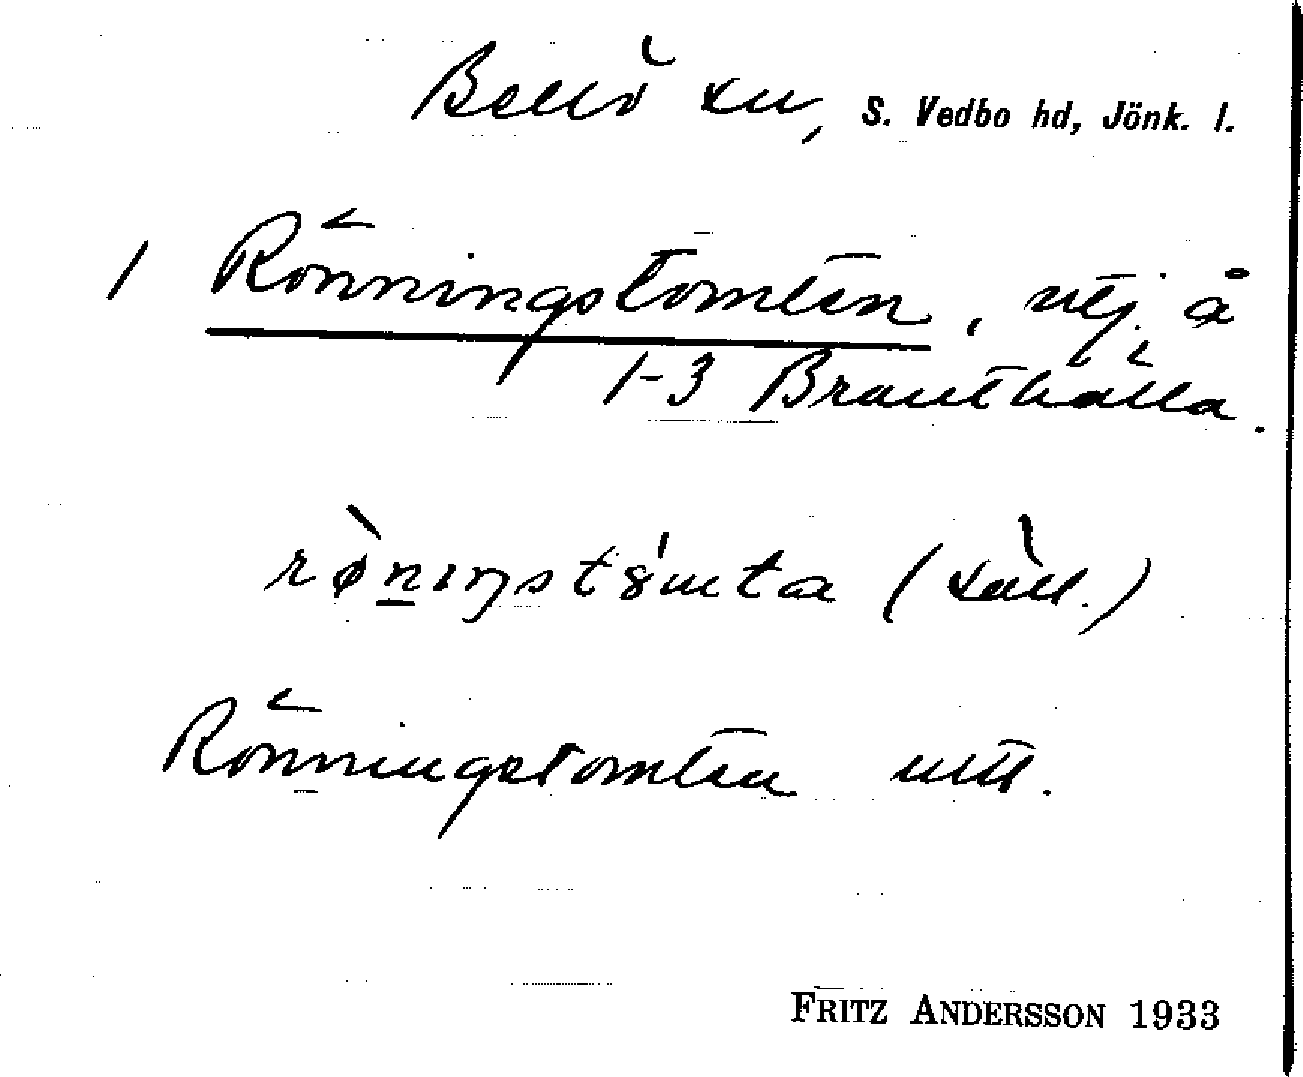 Bellö sn, S. Vedbo hd, Jönk. l.
1 Rönningstomten, utj. å
1-3 Branthälla.
rø̀nıŋstómta
Rönningstomten utt.
FRITZ ANDERSSON 1933